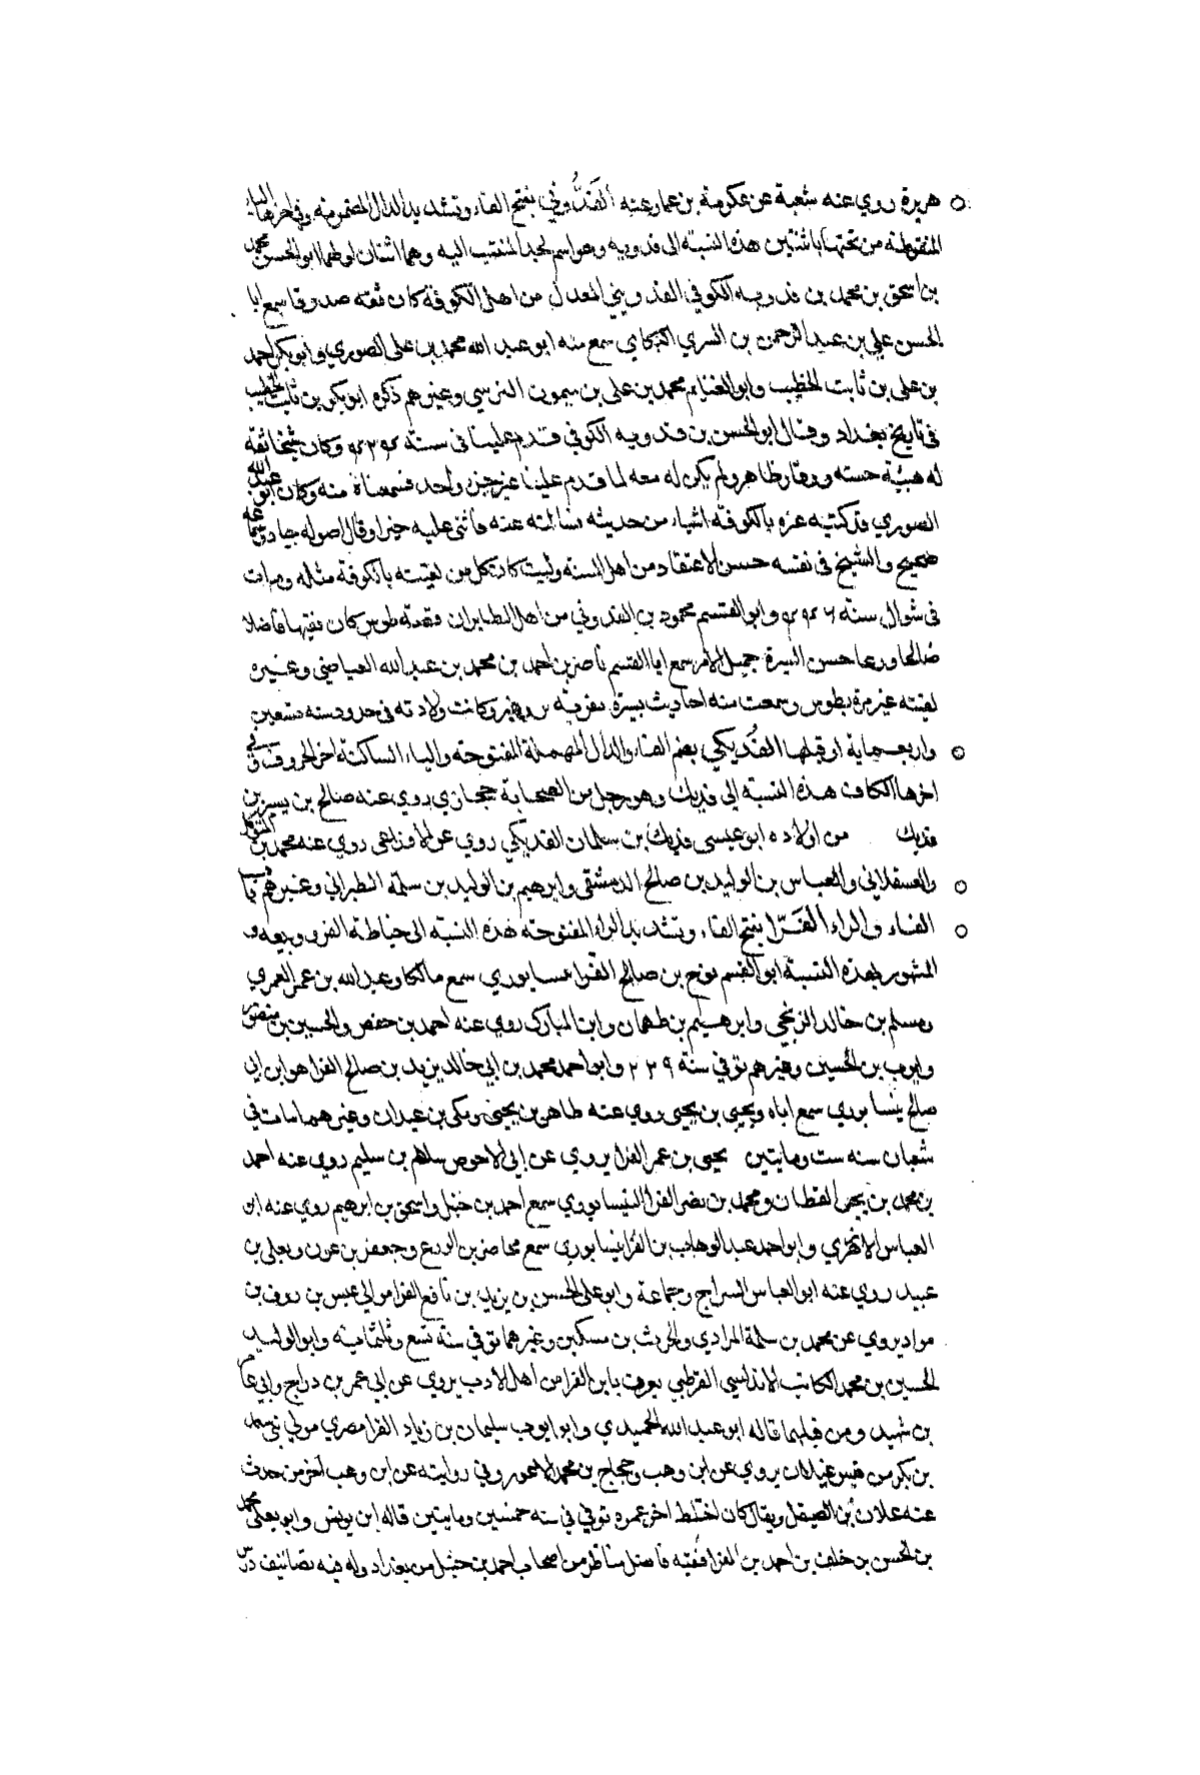 هريرة روي عنه شعبة عن عكرمة بن عمار عنه الفَدُّوني بفتح الفاء وتشديد الدال المضمومة وفي اخرها الياء
المنقوطة من تحتها باثنتين هذه النسبة الى فدويه وهو اسم لجد المنتسب اليه وهما اثنان اولهما ابو الحسن محمد
بن اسحق بن محمد بن فدويه الكوفي الفدويني المعدل من اهل الكوفة كان ثقه صدوقا سمع ابا
الحسن علي بن عبد الرحمن بن السري البكاي سمع منه ابو عبد الله محمد بن على الصوري وابو بكر احمد
بن على بن ثابت الخطيب وابو الغنايم محمد بن على بن ميمون النرسي وغيرهم ذكره ابو بكر بن ثابت الخطيب
فى تاريخ بغداد وقال ابو الحسن بن فدويه الكوفي قدم علينا فى سنة وكان شيخا ثقة
له هيئة حسنه ووقار ظاهر ولم يكن له معه لما قدم علينا غير جزء واحد فسمعناه منه وكان ابو عبد الله
الصوري قد كتب عنه بالكوفة اشياء من حديثه فسالته عنه فاثنى عليه خيرا وقال اصوله جياد وسماعه
صحيح والشيخ فى نفسه حسن الاعتقاد من اهل السنه وليت كان كل من لقيته بالكوفة مثاله ومات
فى شوال سنة وابو القسم محمود بن الفدوني من اهل الطابران قصبة طوس كان فقيها فاضلا
صالحا ورعا حسن السيرة جميل الامر سمع ابا القسم ناصر بن احمد بن محمد بن عبد الله العياضي وغيره
لقيته غير مرة بطوس وسمعت منه احاديث يسيرة بقرية وكانت ولادته فى حدود سنه تسعين
واربعماية او قبلها الفُدَيكي بضم الفاء والدال المهملة المفتوحة والياء الساكنة اخر الحروف وفي
اخرها الكاف هذه النسبة الى فديك وهو رجل من الصحابة حجازي روي عنه صالح بن بشير بن
فديك من اولاده ابو عيسى فديك بن سلمان الفديكي روي عن الاوزاعى روي عنه محمد بن المتوكل
والعسقلاني والعباس بن الوليد بن صالح الدمشقى وابرهيم بن الوليد بن سلمة الطبراني وغيرهم باب
الفاء والراء الفَرّا بفتح الفاء وتشديد الراء المفتوحة هذه النسبة الى خياطة الفرو وبيعه و
المشهور بهذه النسبة ابو القسم نوح بن صالح الفرا نيسابوري سمع مالكا وعبد الله بن عمر العمري
ومسلم بن خالد الزنجي وابرهيم بن طهمان وابن المبارك روي عنه احمد بن حفص والحسين بن منصور
وايوب بن الحسين وغيرهم توفي سنة ٢٣٩ وابو احمد محمد بن ابي خالد يزيد بن صالح الفرا هو ابن ابي
صالح نيسابوري سمع اباه ويحيى بن يحيى روي عنه طاهر بن يحيى ومكي بن عبدان وغيرهما مات في
شعبان سنه ست ومايتين يحيى بن عمر الفرا يروي عن ابي الاحوص سلام بن سليم روي عنه احمد
بن محمد بن يحيى القطان ومحمد بن نصر الفرا النيسابوري سمع احمد بن حنبل واسحق بن ابرهيم روي عنه ابو
العباس الازهري وابو احمد عبد الوهاب بن الفرا نيسابوري سمع محاضر بن المورع وجعفر بن عون ويعلي بن
عبيد روي عنه ابو العباس السراج وجماعة وابو على الحسن بن يزيد بن نافع الفرا مولي عبس بن روف بن
مراد يروي عن محمد بن سلمة المرادي والحرث بن مسكين وغيرهما توفي سنة تسع وثلثماية وابو الوليد
الحسين بن محمد الكاتب الاندلسي القرطبي يعرف بابن الفرا من اهل الادب يروي عن ابي عمر بن دراج وابي عامر
بن شهيد ومن قبلهما قاله ابو عبد الله الحميدي وابو ايوب سليمان بن زياد الفرا مصري مولي بني سعد
بن بكر من قيس غيلان يروي عن ابن وهب وحجاج بن محمد الاعور وفي روايته عن ابن وهب اخر من حدث
عنه علان بن الصيقل ويقال كان اختلط اخر عمره توفي في سنه خمسين ومايتين قاله ابن يونس وابو يعلى محمد
بن الحسن بن خلف بن احمد بن الفرا فقيه فاضل مناظر من اصحاب احمد بن حنبل من بغداد وله فيه تصانيف درس